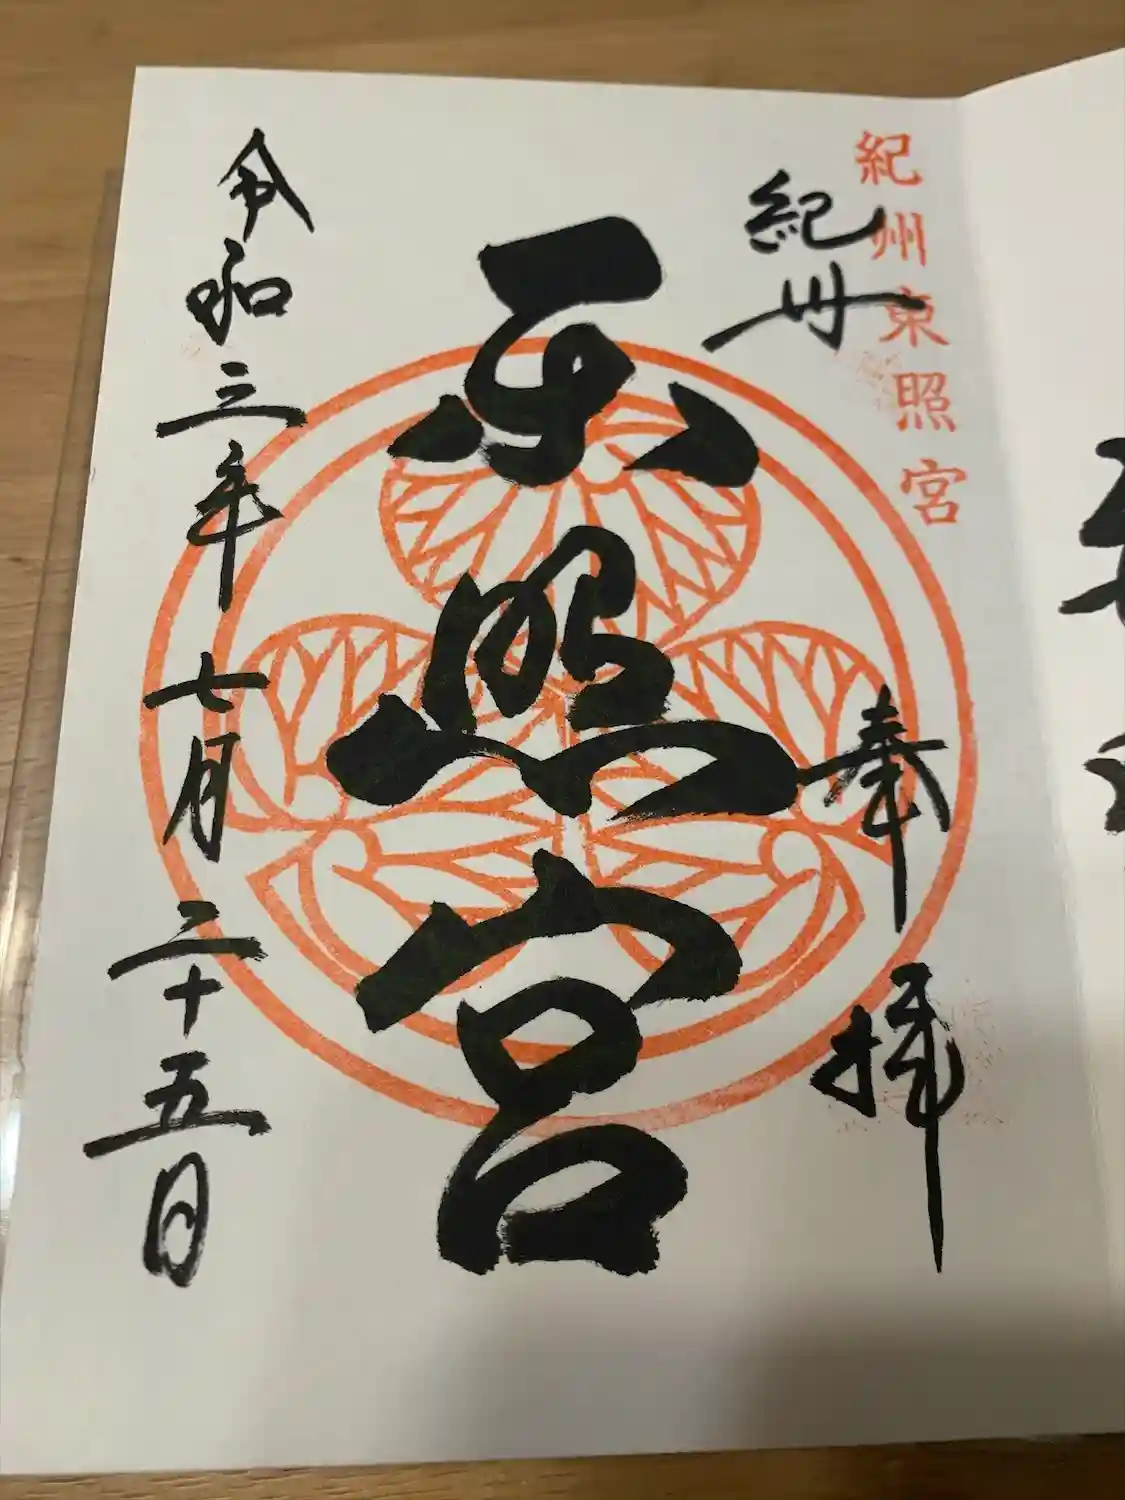 紀州東照宮
紀州
奉拝
東照宮
令和三年七月二十五日